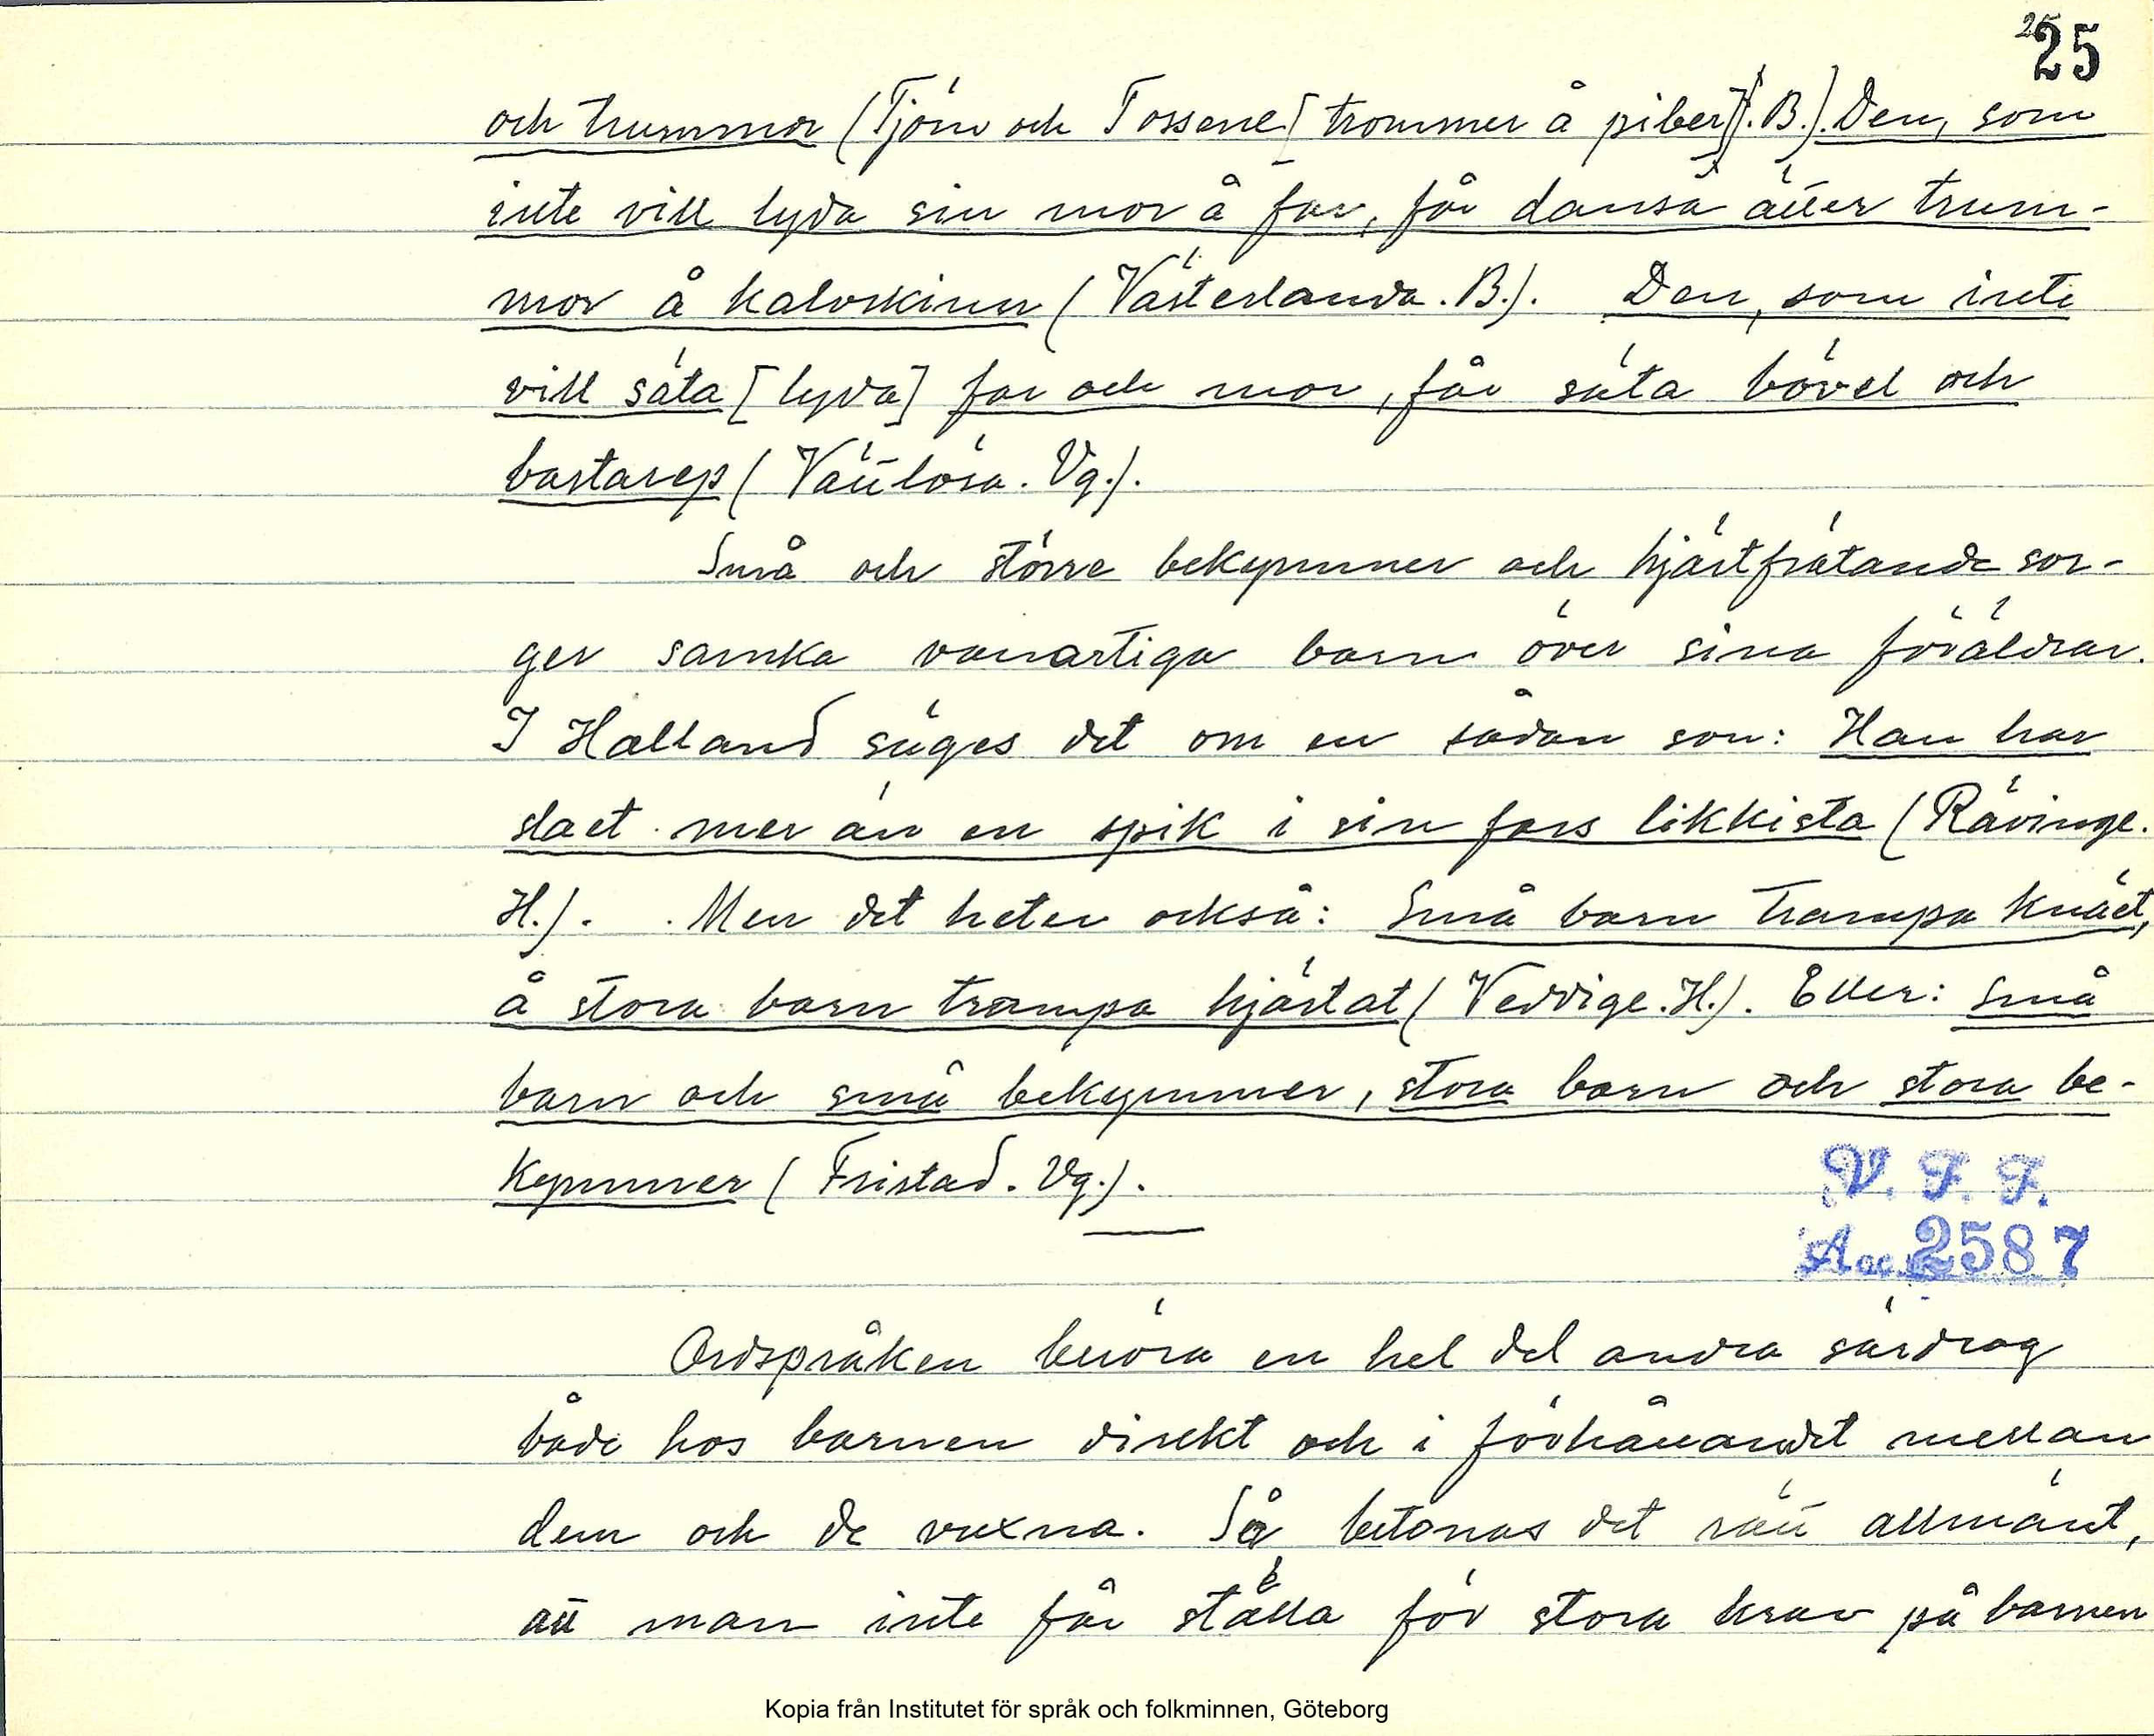 25
25
och trummor (Tjörn och Tossene [trommer å piber]. B.). Den, som
inte vill lyda sin mor å far, får dansa ätter trum-
mor å kalvskinn (Västerlanda. B.). Den, som inte
vill säta [lyda] far och mor, får säta bövel och
bastarep (Vättlösa. Vg.).
Små och större bekymmer och hjärtfrätande sor-
ger samka vanartiga barn över sina föräldrar.
I Halland säges det om en sådan son: Han har
slaet mer än en spik i sin fars likkista (Rävinge.
H.). Men det heter också: Små barn trampa knäet,
å stora barn trampa hjärtat (Veddige. H.). Eller: Små
barn och små bekymmer, stora barn och stora be-
kymmer (Fristad. Vg.).
V. F. F.
Acc. 2587
Ordspråken beröra en hel del andra särdrag
både hos barnen direkt och i förhållandet mellan
dem och de vuxna. Så betonas det rätt allmänt,
att man inte får ställa för stora krav på barnen
Kopia från Institutet för språk och folkminnen, Göteborg